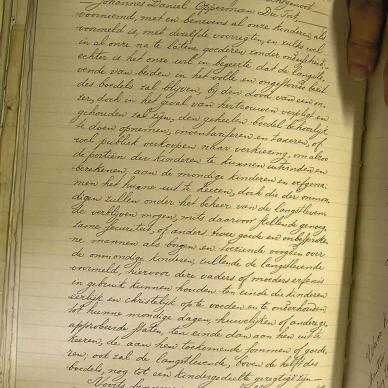 Johannes Daniel Opperman Du Toit,
voornoemd, met en benevens al onze kinderen, als
vermeld is, met dezelfde voorregten, en zulks wel
in al onze na te laten goederen zonder onderscheid,
echter is het onze wil en begeerte dat de langstle-
vende van beiden in het volle en ongestoorde bezit
des boedels zal blijven, bij den dood van een on-
zer, doch in het geval van hertrouwen verpligt en
gehouden zal zijn, den geheelen boedel behoorlijk
te doen opnemen, inventariseren en taxeren, of
wel publiek verkoopen naar verkiezing, om alzoo
de portien der kinderen te kunnen uitvinden en
berekenen, aan de mondige kinderen en erfgena-
men het hunne uit te keeren, doch die der onmon-
digen zullen onder het beheer van de langstlevende
te verblijven mogen, mits daarvoor stellende genoeg-
zame securiteit, of anders twee goede en onbesproke-
ne mannen als borgen en toeziende voogden over
de onmondige kinderen, zullende de langstlevende
voormeld, hiervoor dere vaders of moeders erfenis
in gebruik kunnen houden ten einde die kinderen
eerlijk en christelijk op te voeden en te onderhouden
tot hunne mondige dagen, huwelijken of andere ge-
approbeerde staten, ten einde dan aan hen uit te
keeren, de aan hen toekomende sommen of goede-
ren, ook zal de langstlevende, boven de helft des
boedels, nog tot een kindergedeelte geregtigd zijn.